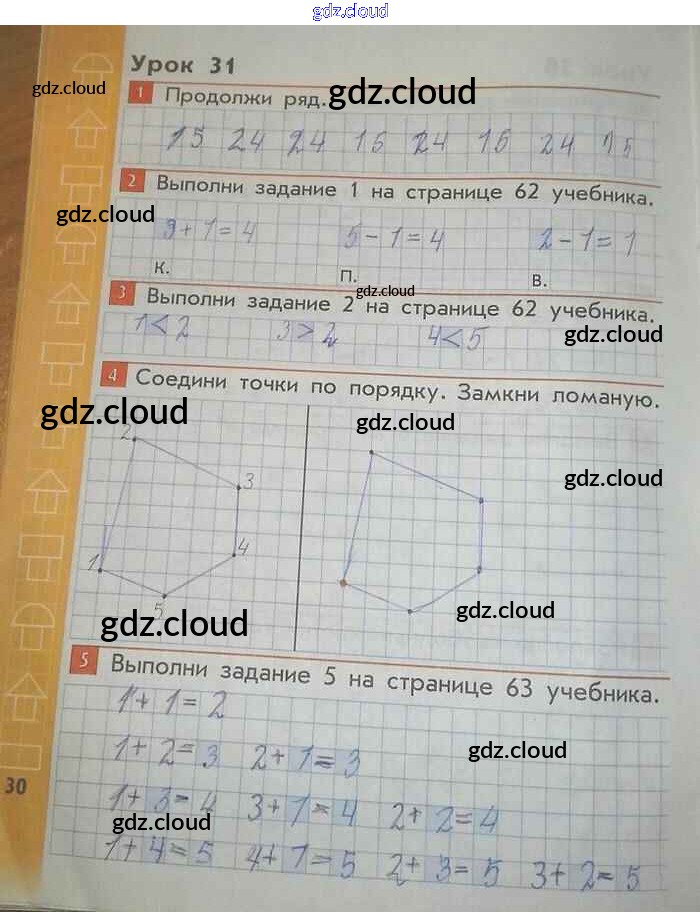 gdz.cloud
Урок 31
gdz.cloud
1 Продолжи ряд. gdz.cloud
15 24 24 15 24 15 24 15
2 Выполни задание 1 на странице 62 учебника.
gdz.cloud
3+1=4 5-1=4 2-1=1
К. П. В.
gdz.cloud
3 Выполни задание 2 на странице 62 учебника.
1<2 3>2 4<5
gdz.cloud
4 Соедини точки по порядку. Замкни ломаную.
gdz.cloud
gdz.cloud
2
gdz.cloud
3
4
1
5
gdz.cloud
gdz.cloud
5 Выполни задание 5 на странице 63 учебника.
1+1=2
1+2=3 2+1=3
gdz.cloud
30
1+3=4 3+1=4 2+2=4
gdz.cloud
1+4=5 4+1=5 2+3=5 3+2=5